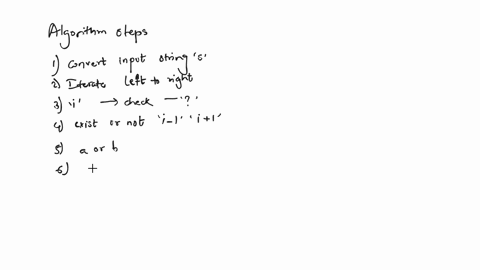 Algorithm steps
1) Convert Input string 's'
2) Iterate left to right
3) 'i' → check — '?'
4) exist or not 'i-1' 'i+1'
5) a or b
6) +